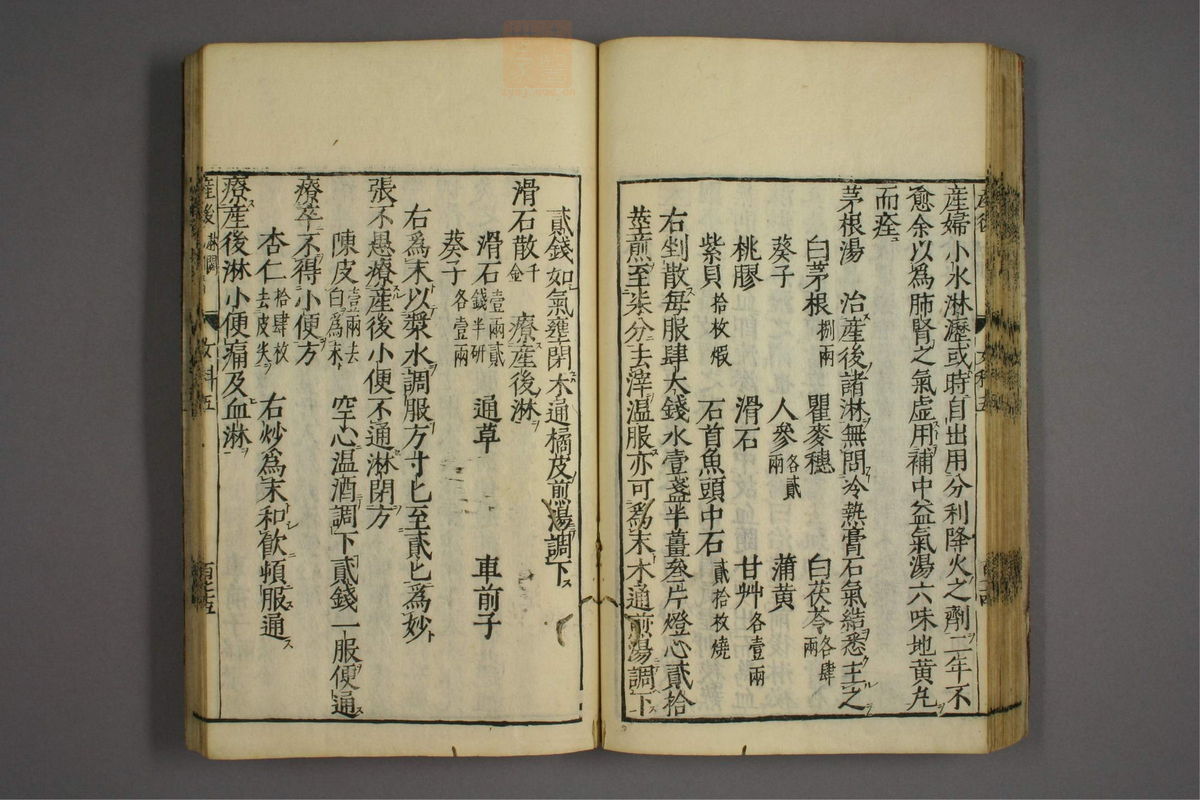 産婦小水淋瀝或時自出用分利降火之劑二年不
愈余以爲肺腎之氣虚用補中益氣湯六味地黄丸
而痊
茅根湯 治産後諸淋無問冷熱膏石氣結悉主之
白茅根捌兩 瞿麥穗 白茯苓各肆兩
葵子 人參各貳兩 蒲黄
桃膠 滑石 甘艸各壹兩
紫貝拾枚煅 石首魚頭中石貳拾枚燒
右剉散每服肆大錢水壹盞半薑叁片燈心貳拾
莖煎至柒分去滓温服亦可爲末木通煎湯調下
貳錢如氣壅閉木通橘皮煎湯調下
滑石散千金 療産後淋
滑石壹兩貳錢半研 通草 車前子
葵子各壹兩
右爲末以漿水調服方寸匕至貳匕爲妙
張不愚療産後小便不通淋閉方
陳皮壹兩去白爲末 空心温酒調下貳錢一服便通
療卒不得小便方
杏仁拾肆枚去皮尖 右炒爲末和飮頓服通
療産後淋小便痛及血淋
産後淋 女科五